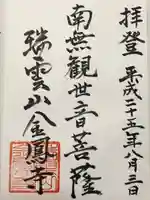 拝登 平成二十五年八月三日
南無観世音菩薩
瑞雲山金鳳寺